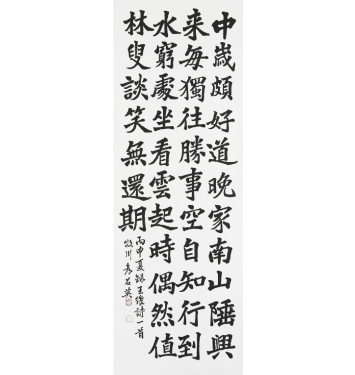 中歲頗好道晚家南山陲興
来每獨往勝事空自知行到
水窮處坐看雲起時偶然值
林叟談笑無還期
丙申夏錄王維詩一首